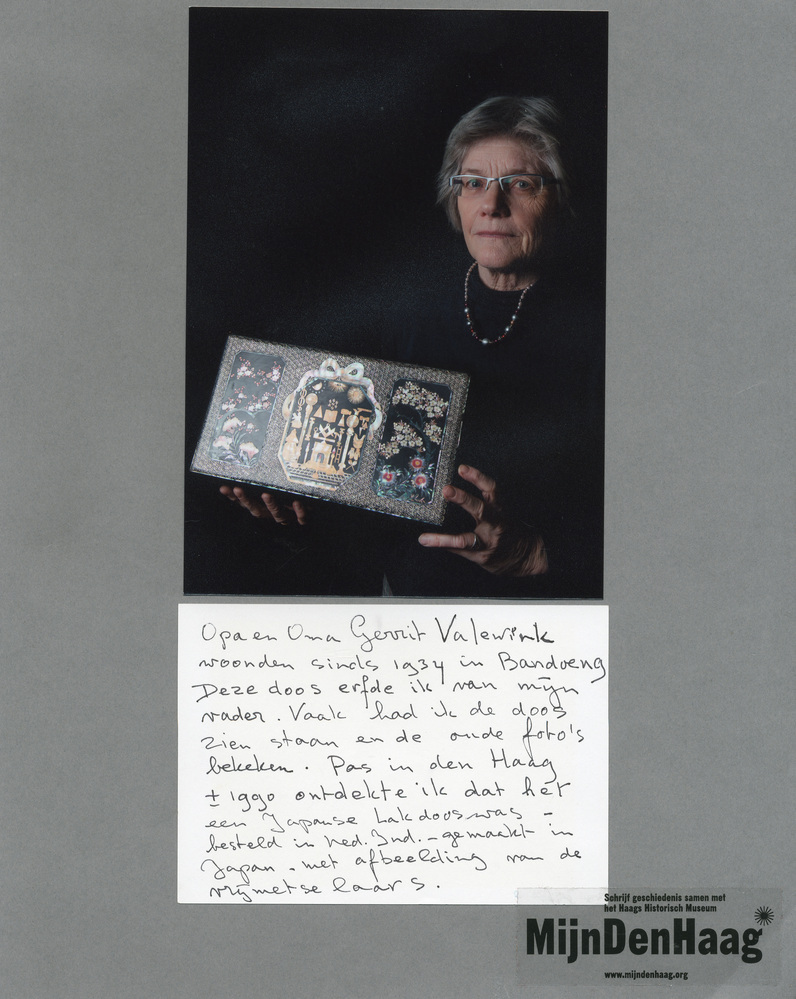 Opa en Oma Gerrit Valewink
woonden sinds 1934 in Bandoeng
Deze doos erfde ik van mijn
vader. Vaak had ik de doos
zien staan en de oude foto's
bekeken. Pas in den Haag
± 1990 ontdekte ik dat het
een Japanse Lakdoos was –
besteld in Ned. Ind. – gemaakt in
Japan – met afbeelding van de
vrijmetselaars.
Schrijf geschiedenis samen met
het Haags Historisch Museum
MijnDenHaag
www.mijndenhaag.org